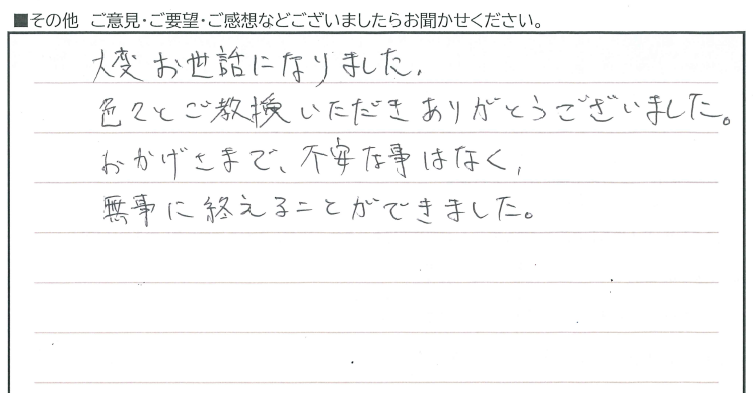 ■その他 ご意見・ご要望・ご感想などございましたらお聞かせください。
大変お世話になりました.
色々とご教授いただきありがとうございました。
おかげさまで、不安な事はなく,
無事に終えることができました。